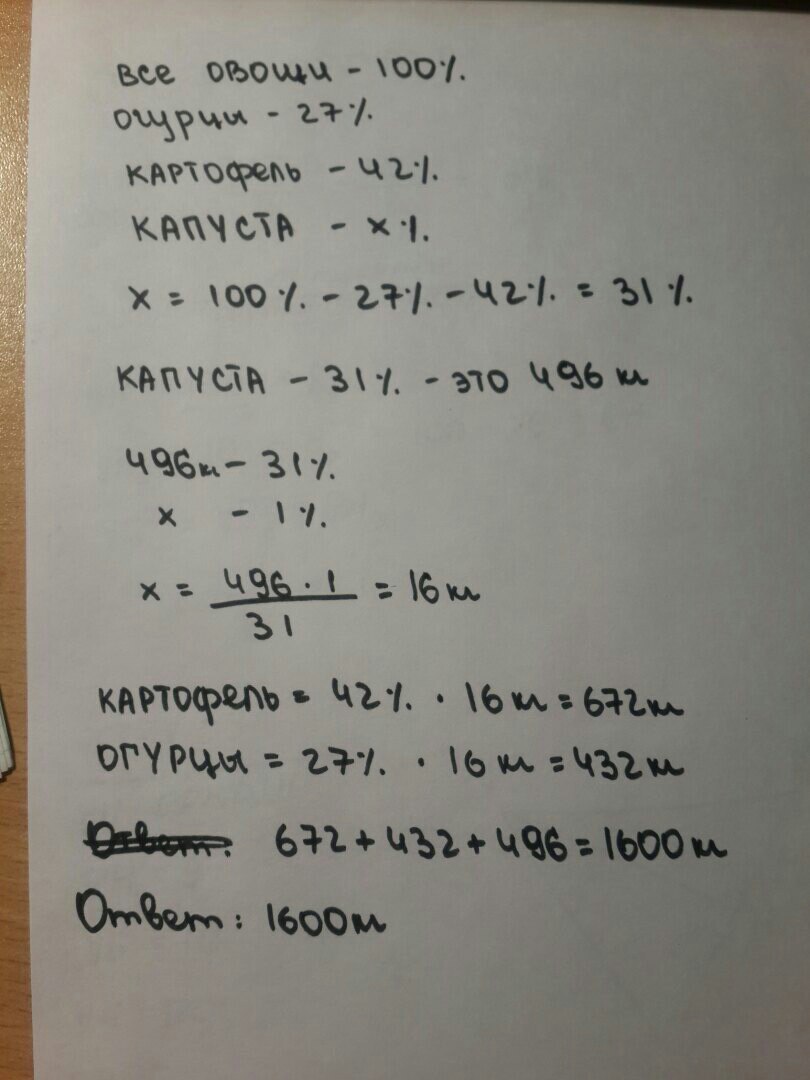 все овощи - 100%.
огурцы - 27%.
картофель - 42%.
капуста - x%.
x = 100%. - 27%. - 42%. = 31%.
капуста - 31%. - это 496м
496м - 31%.
x - 1%.
x = 496 · 1 / 31 = 16м
картофель = 42%. · 16м = 672м
огурцы = 27%. · 16м = 432м
Ответ: 672 + 432 + 496 = 1600м
Ответ: 1600м